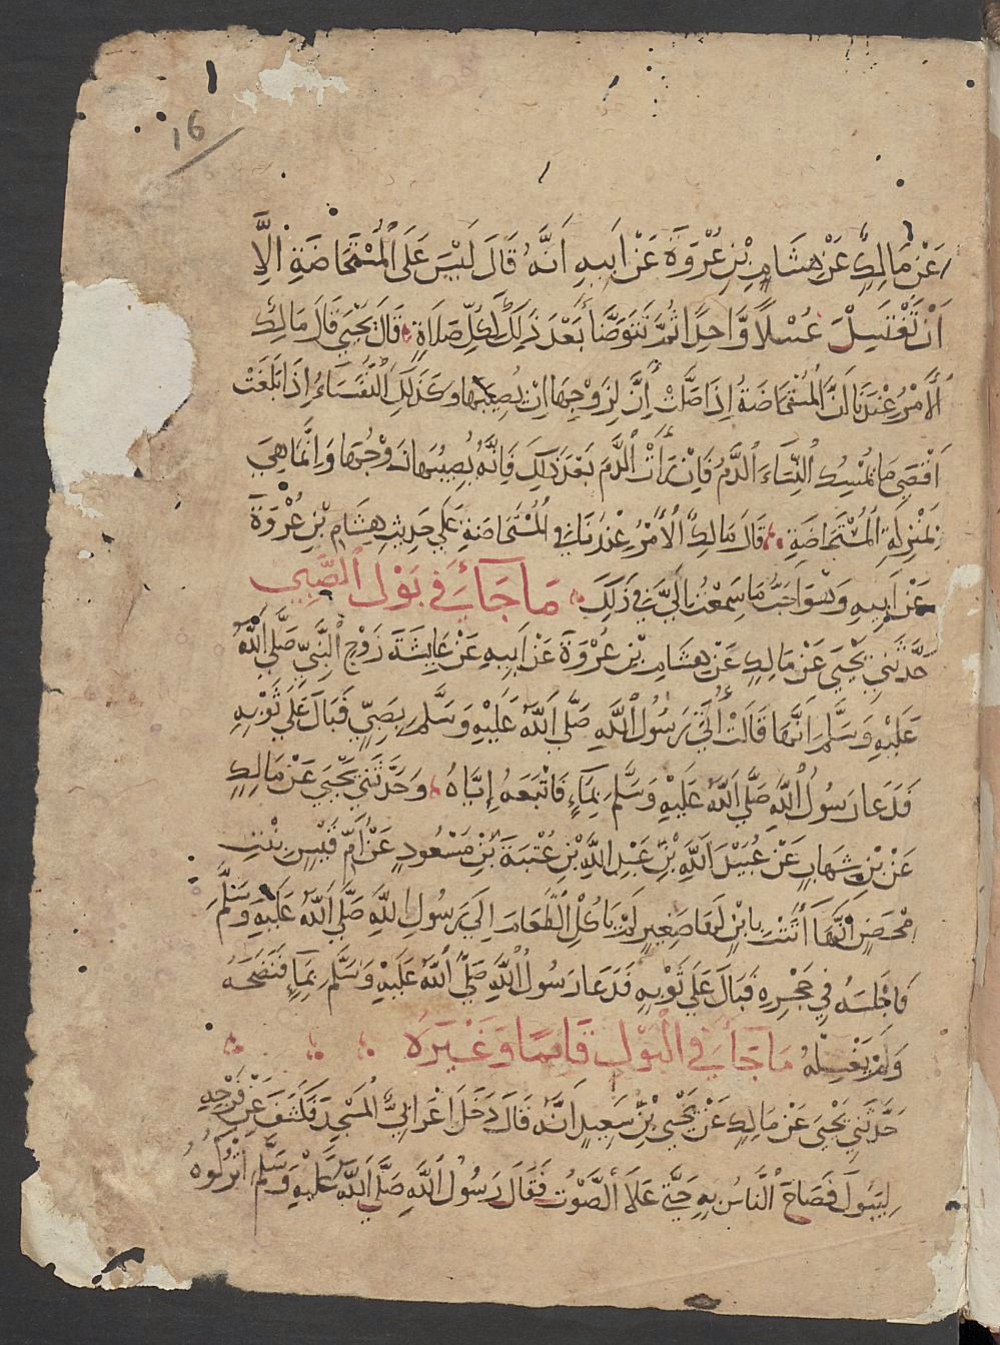 16
عَنْ مَالِكٍ عَنْ هِشَامِ بْنِ عُرْوَةَ عَنْ اَبِيهِ اَنَّهُ قَالَ لَيْسَ عَلَى الْمُسْتَحَاضَةِ اِلَّا
اَنْ تَغْتَسِلَ غُسْلاً وَّاحِدًا ثُمَّ تَتَوَضَّأَ بَعْدَ ذَلِكَ لِكُلِّ صَلَاةٍ قَالَ يَحْيَى قَالَ مَالِكٌ
اَلْأَمْرُ عِنْدَنَا اَنَّ الْمُسْتَحَاضَةَ اِذَا صَلَّتْ اَنَّ لِزَوْجِهَا اَنْ يُصِيبَهَا وَكَذَلِكَ النُّفَسَاءُ اِذَا بَلَغَتْ
اَقْصَى مَا يُمْسِكُ النِّسَاءَ الدَّمُ فَاِنْ رَأَتْ الدَّمَ بَعْدَ ذَلِكَ فَاِنَّهُ يُصِيبُهَا زَوْجُهَا وَاِنَّمَا هِيَ
بِمَنْزِلَةِ الْمُسْتَحَاضَةِ قَالَ مَالِكٌ الْأَمْرُ عِنْدَنَا فِي الْمُسْتَحَاضَةِ عَلَى حَدِيثِ هِشَامِ بْنِ عُرْوَةَ
عَنْ اَبِيهِ وَهُوَ اَحَبُّ مَا سَمِعْتُ اِلَيَّ فِي ذَلِكَ مَا جَاءَ فِي بَوْلِ الصَّبِي
حَدَّثَنِي يَحْيَى عَنْ مَالِكٍ عَنْ هِشَامِ بْنِ عُرْوَةَ عَنْ اَبِيهِ عَنْ عَايِشَةَ زَوْجِ النَّبِيِّ صَلَّى اللَّهُ
عَلَيْهِ وَسَلَّمَ اَنَّهَا قَالَتْ اُتِيَ رَسُولُ اللَّهِ صَلَّى اللَّهُ عَلَيْهِ وَسَلَّمَ بِصَبِيٍّ فَبَالَ عَلَى ثَوْبِهِ
فَدَعَا رَسُولُ اللَّهِ صَلَّى اللَّهُ عَلَيْهِ وَسَلَّمَ بِمَاءٍ فَاتْبَعَهُ اِيَّاهُ وَحَدَّثَنِي يَحْيَى عَنْ مَالِكٍ
عَنْ بْنِ شِهَابٍ عَنْ عُبَيْدِ اللَّهِ بْنِ عَبْدِ اللَّهِ بْنِ عُتْبَةَ بْنِ مَسْعُودٍ عَنْ اُمِّ قَيْسٍ بِنْتِ
مِحْصَنٍ اَنَّهَا اَتَتْ بِابْنٍ لَهَا صَغِيرٍ لَمْ يَاكُلِ الْطَّعَامَ اِلَى رَسُولِ اللَّهِ صَلَّى اللَّهُ عَلَيْهِ وَسَلَّمَ
فَاجْلَسَهُ فِي حَجْرِهِ فَبَالَ عَلَى ثَوْبِهِ فَدَعَا رَسُولُ اللَّهِ صَلَّى اللَّهُ عَلَيْهِ وَسَلَّمَ بِمَاءٍ فَنَضَحَهُ
وَلَمْ يَغْسِلْهُ مَا جَاءَ فِي الْبَوْلِ قَايِمًا وَغَيْرَهُ
حَدَّثَنِي يَحْيَى عَنْ مَالِكٍ عَنْ يَحْيَى بْنِ سَعِيدٍ اَنَّهُ قَالَ دَخَلَ اَعْرَابِيٌّ الْمَسْجِدَ فَكَشَفَ عَنْ فَرْجِهِ
لِيَبُولَ فَصَاحَ النَّاسُ بِهِ حَتَّى عَلَا الصَّوْتُ فَقَالَ رَسُولُ اللَّهِ صَلَّى اللَّهُ عَلَيْهِ وَسَلَّمَ اتْرُكُوهُ